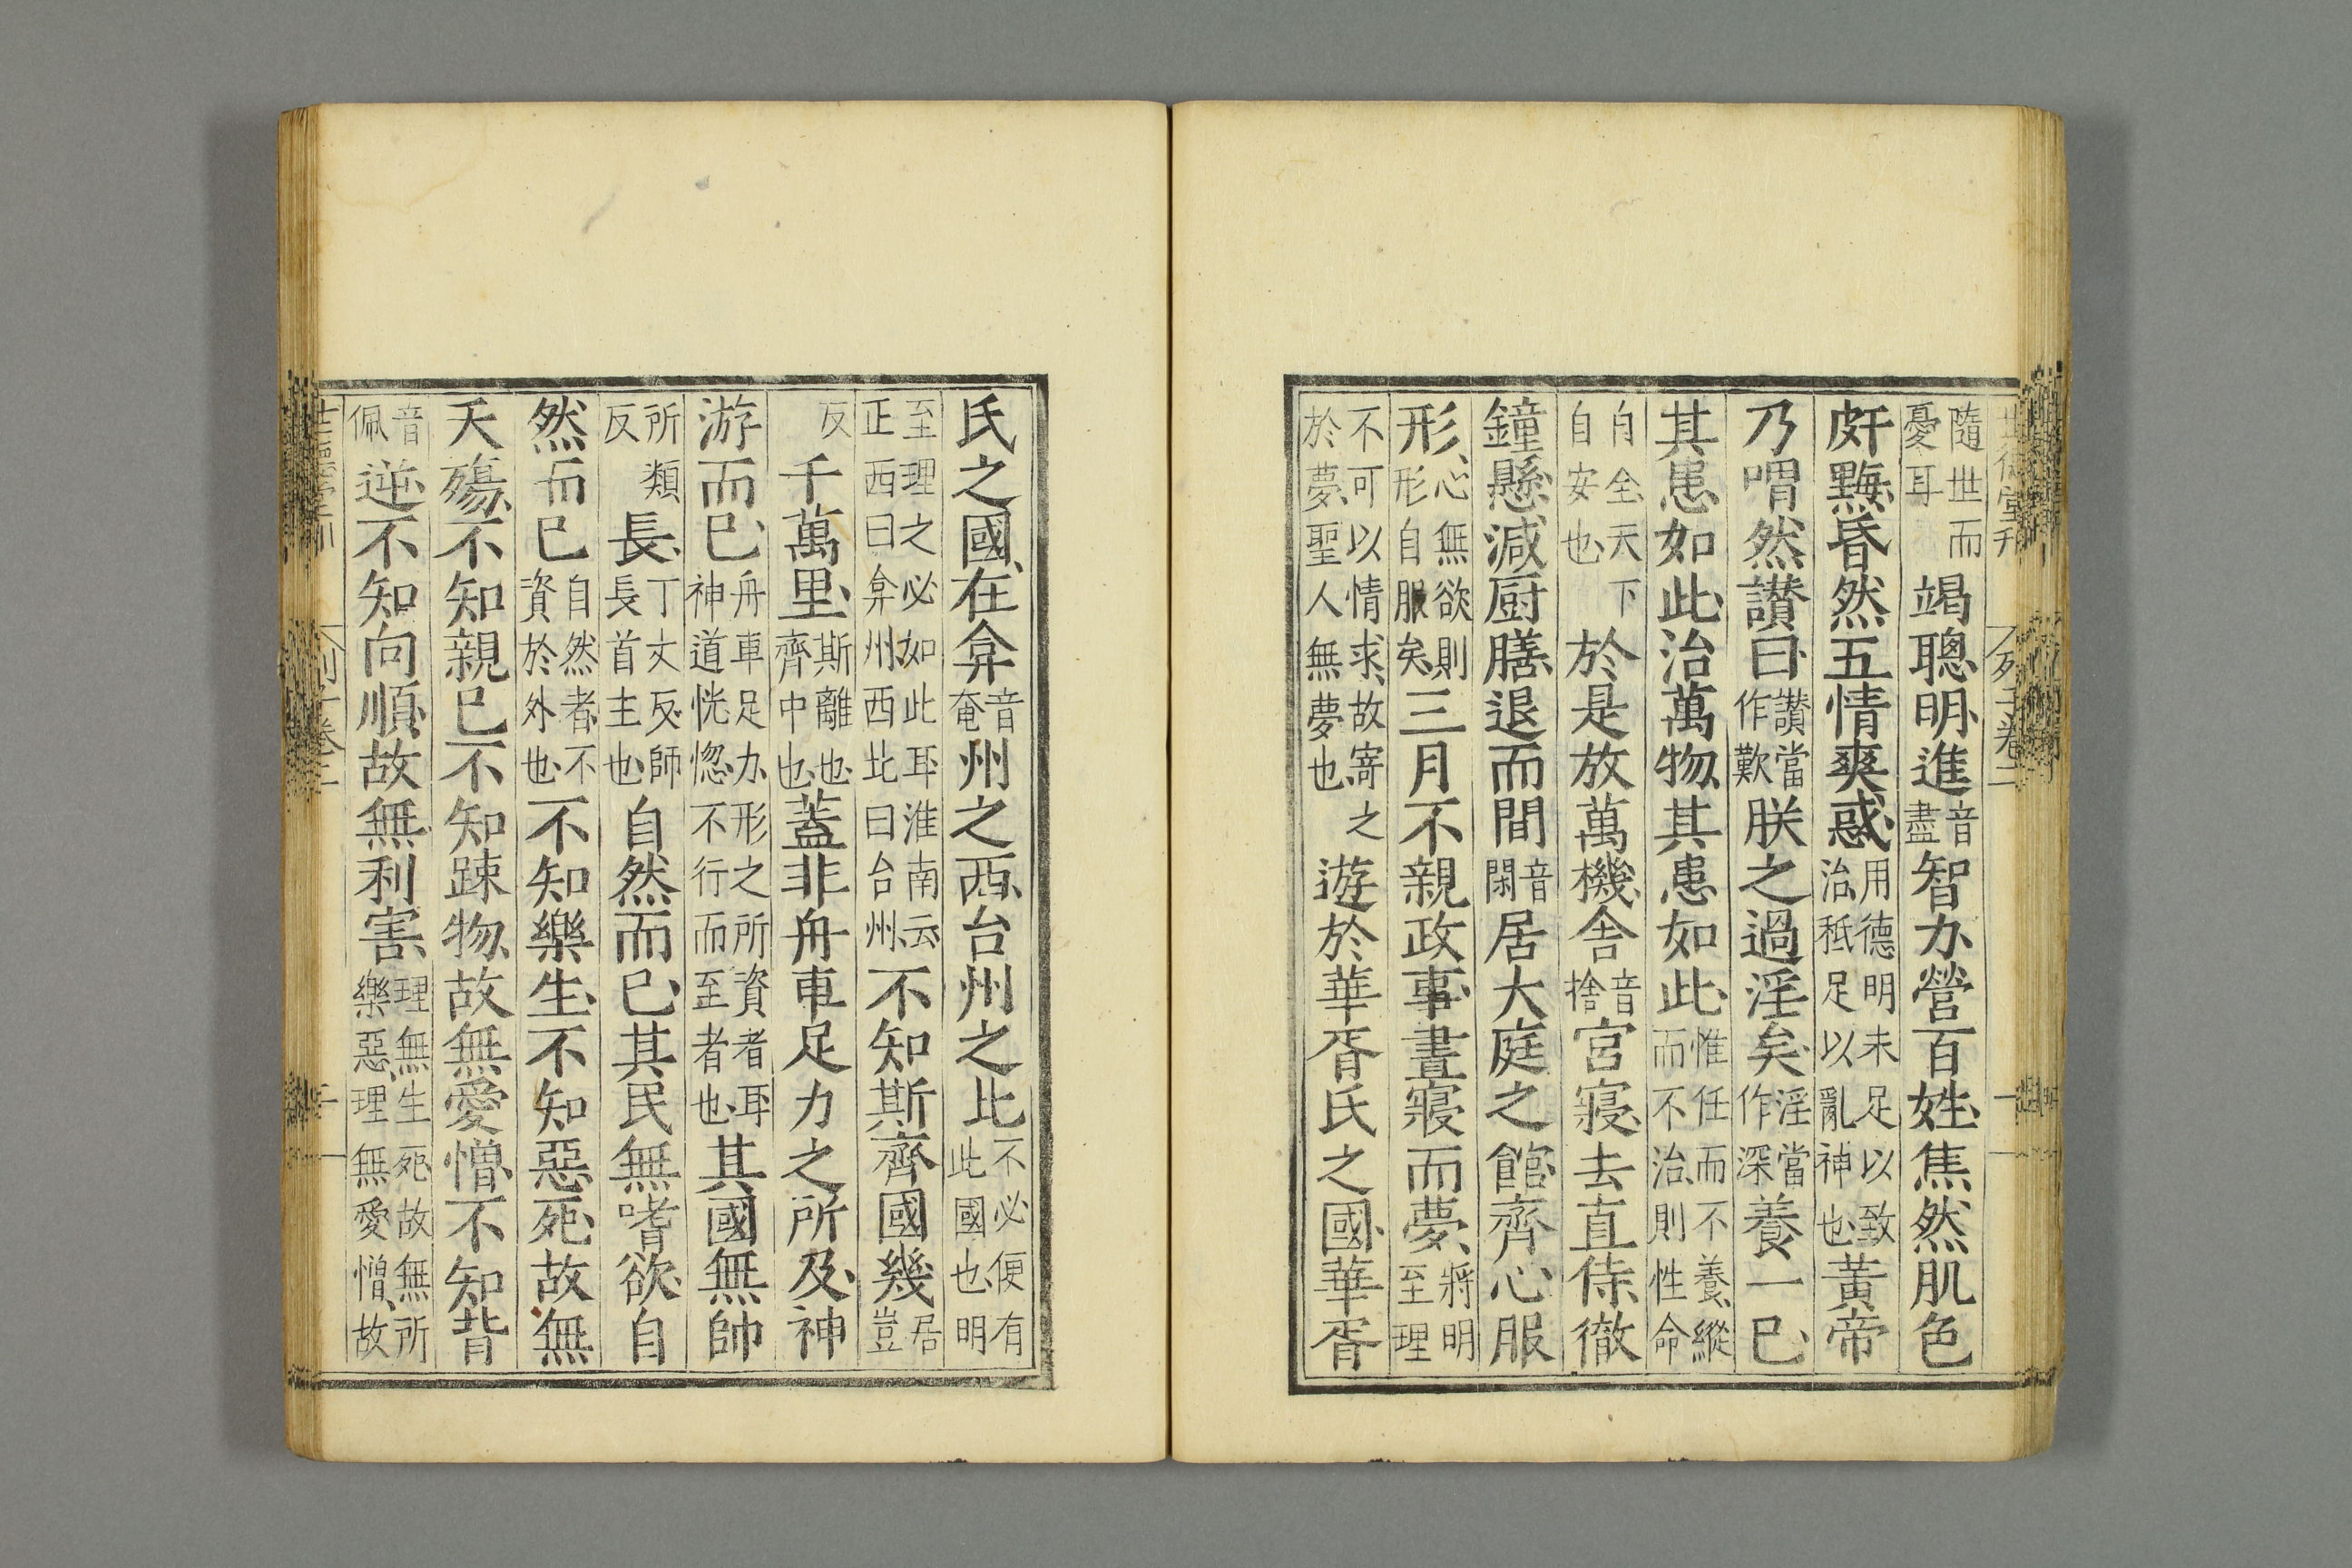 世德堂刊 列子卷二 一
隨世而憂耳竭聰明進音盡智力營百姓焦然肌色
皯黣昏然五情爽惑用德明未足以致治秪足以亂神也黃帝
乃喟然讃曰讃當作歎朕之過淫矣淫當作深養一已
其患如此治萬物其患如此惟任而不養縱而不治則性命
自全天下自安也於是放萬機舍音捨宮寢去直侍徹
鐘懸減厨膳退而間音閑居大庭之館齊心服
形心無欲則形自服矣三月不親政事晝寢而夢將明至理
不可以情求故寄之於夢聖人無夢也遊於華胥氏之國華胥
氏之國在弇音奄州之西台州之北不必便有此國也明
至理之必如此耳淮南云正西曰弇州西北曰台州不知斯齊國幾居豈
反千萬里斯離也齊中也蓋非舟車足力之所及神
游而已舟車足力形之所資者耳神道恍惚不行而至者也其國無帥
所類反長丁丈反師長首主也自然而已其民無嗜欲自
然而已自然者不資於外也不知樂生不知惡死故無
夭殤不知親已不知踈物故無愛憎不知背
音佩逆不知向順故無利害理無生死故無所樂惡理無愛憎故無所
列子卷二 二